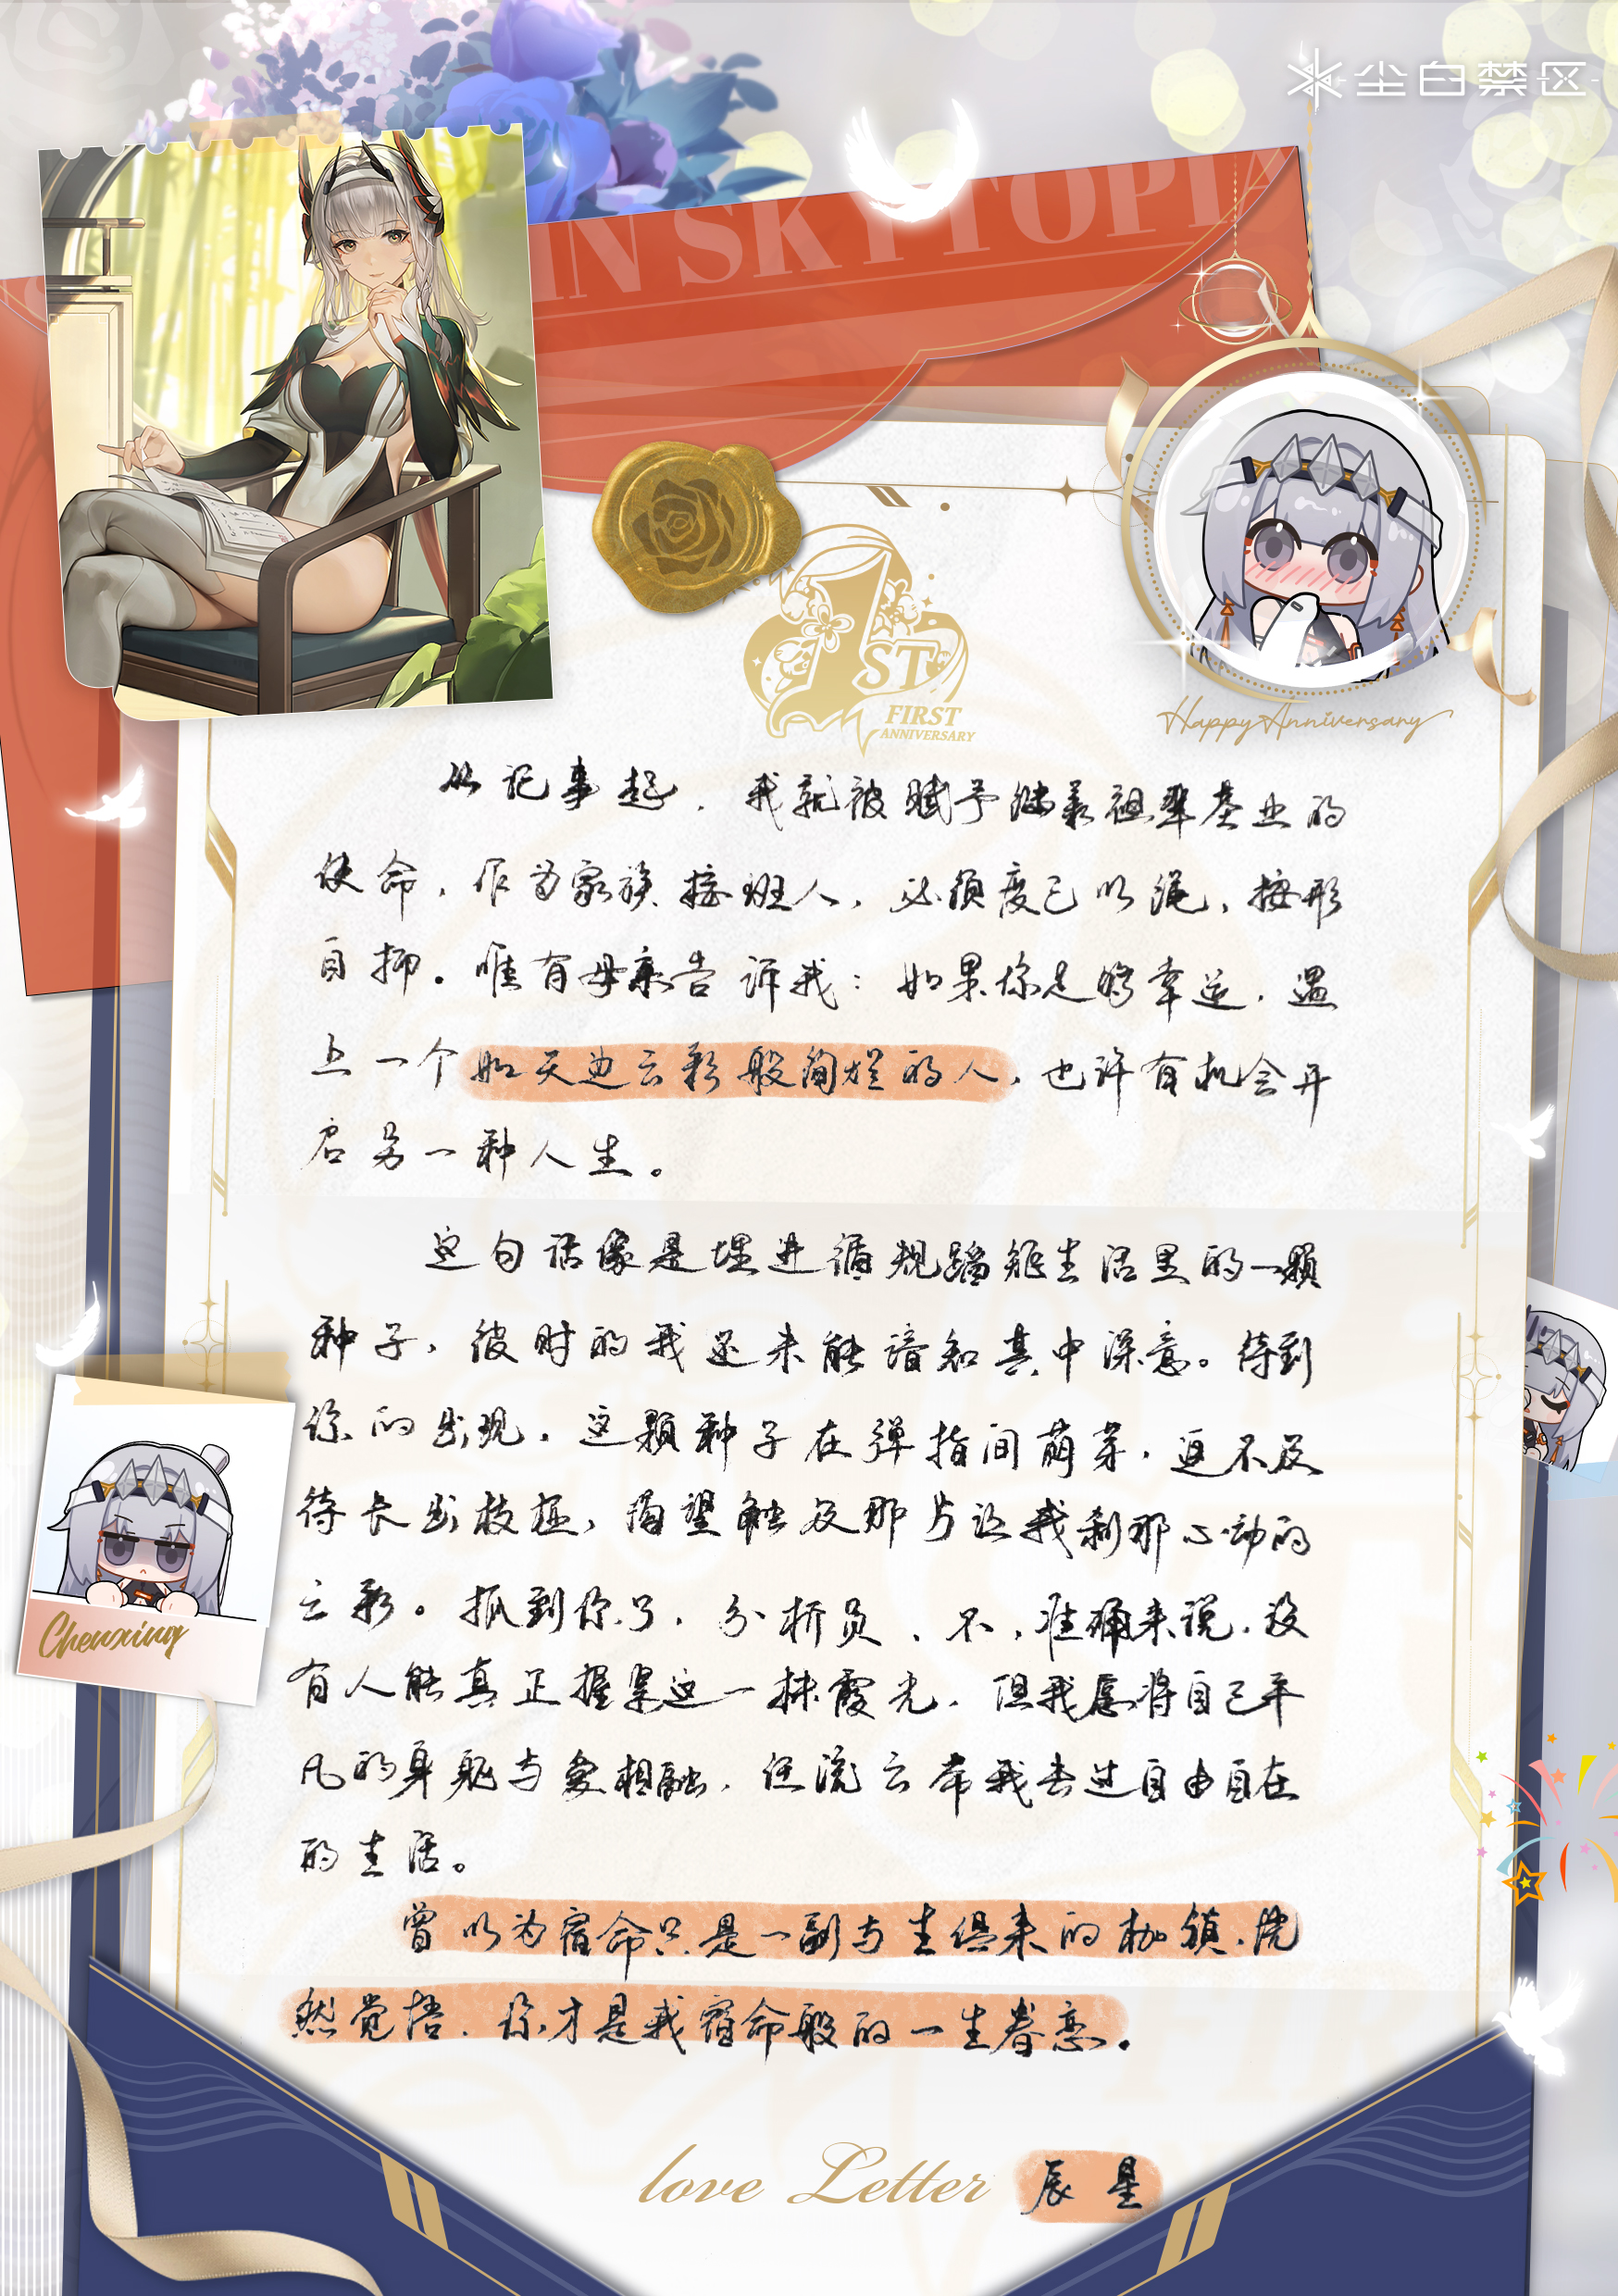 尘白禁区
IN SKYTOPIA
1ST
FIRST
ANNIVERSARY
Happy Anniversary
从记事起，我就被赋予继承祖辈基业的
使命，作为家族接班人，必须度己以绳，按形
自抑。唯有母亲告诉我：如果你足够幸运，遇
上一个如天边云彩般绚烂的人，也许有机会开
启另一种人生。
这句话像是埋进循规蹈矩生活里的一颗
种子，彼时的我还未能谙知其中深意。待到
你的出现，这颗种子在弹指间萌芽，迫不及
待长出枝桠，渴望触及那片让我刹那心动的
云彩。抓到你了，分析员，不，准确来说，没
有人能真正握紧这一抹霞光，但我愿将自己平
凡的身躯与爱相融，任流云带我去过自由自在
的生活。
曾以为宿命只是一副与生俱来的枷锁，恍
然觉悟，你才是我宿命般的一生眷恋。
Chenxing
love Letter 辰星